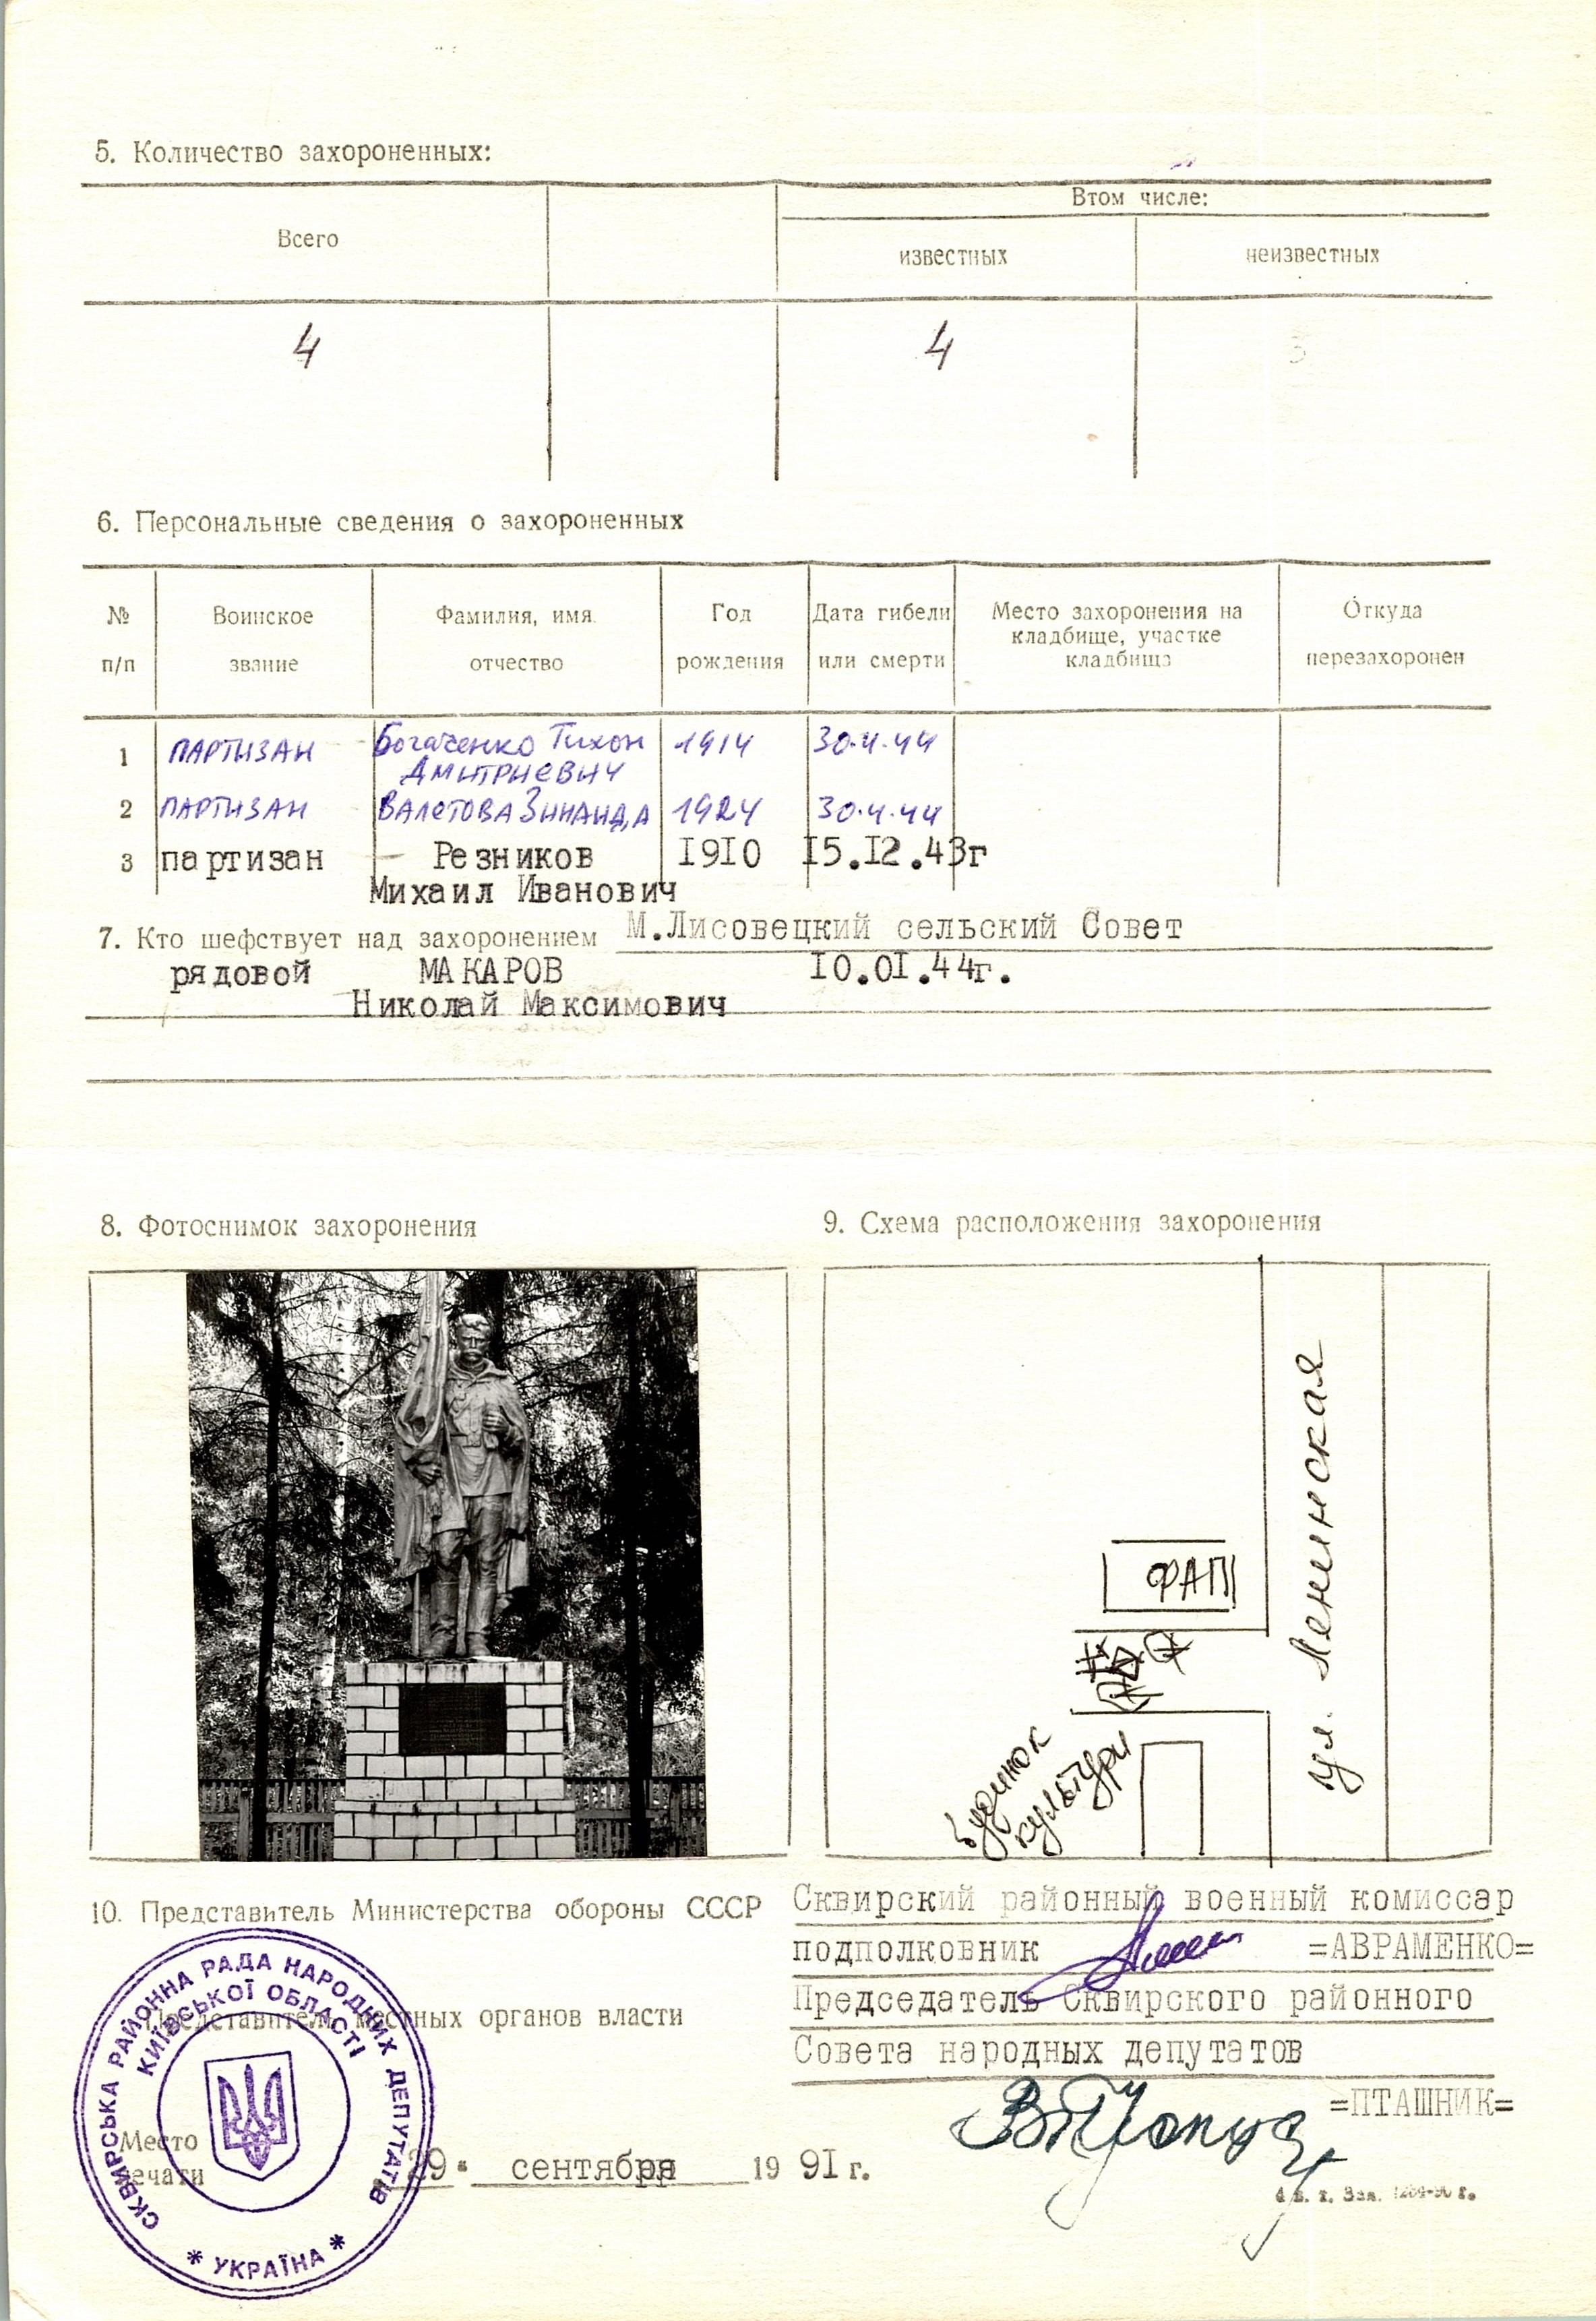 5. Количество захороненных:
Всего
Втом числе:
известных
неизвестных
4
4
3
6. Персональные сведения о захороненных
№ п/п
Воинское звание
Фамилия, имя отчество
Год рождения
Дата гибели или смерти
Место захоронения на кладбище, участке кладбища
Откуда перезахоронен
1 ПАРТИЗАН Богаченко Тихон 1914 30.4.44
Дмитриевич
2 ПАРТИЗАН Валетова Зинаида 1924 30.4.44
3 партизан Резников 1910 15.12.43г
Михаил Иванович
7. Кто шефствует над захоронением М.Лисовецкий сельский Совет
рядовой МАКАРОВ 10.01.44г.
Николай Максимович
8. Фотоснимок захоронения
9. Схема расположения захоронения
ул. Ленинская
ФАП
будинок
культури
10. Представитель Министерства обороны СССР
Сквирский районный военный комиссар
подполковник =АВРАМЕНКО=
Представитель местных органов власти
Председатель Сквирского районного
Совета народных депутатов
=ПТАШНИК=
Место
печати
29 сентября 19 91 г.
СКВИРСЬКА РАЙОННА РАДА НАРОДНИХ ДЕПУТАТІВ
КИЇВСЬКОЇ ОБЛАСТІ
* УКРАЇНА *